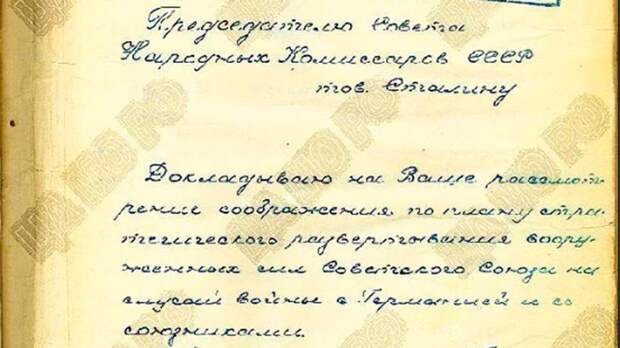 Председателю Совета
Народных Комиссаров СССР
тов. Сталину
Докладываю на Ваше рассмот-
рение соображения по плану стра-
тегического развертывания воору-
женных сил Советского Союза на
случай войны с Германией и ее
союзниками.
ЦА МО РФ
ЦА МО РФ
ЦА МО РФ
ЦА МО РФ